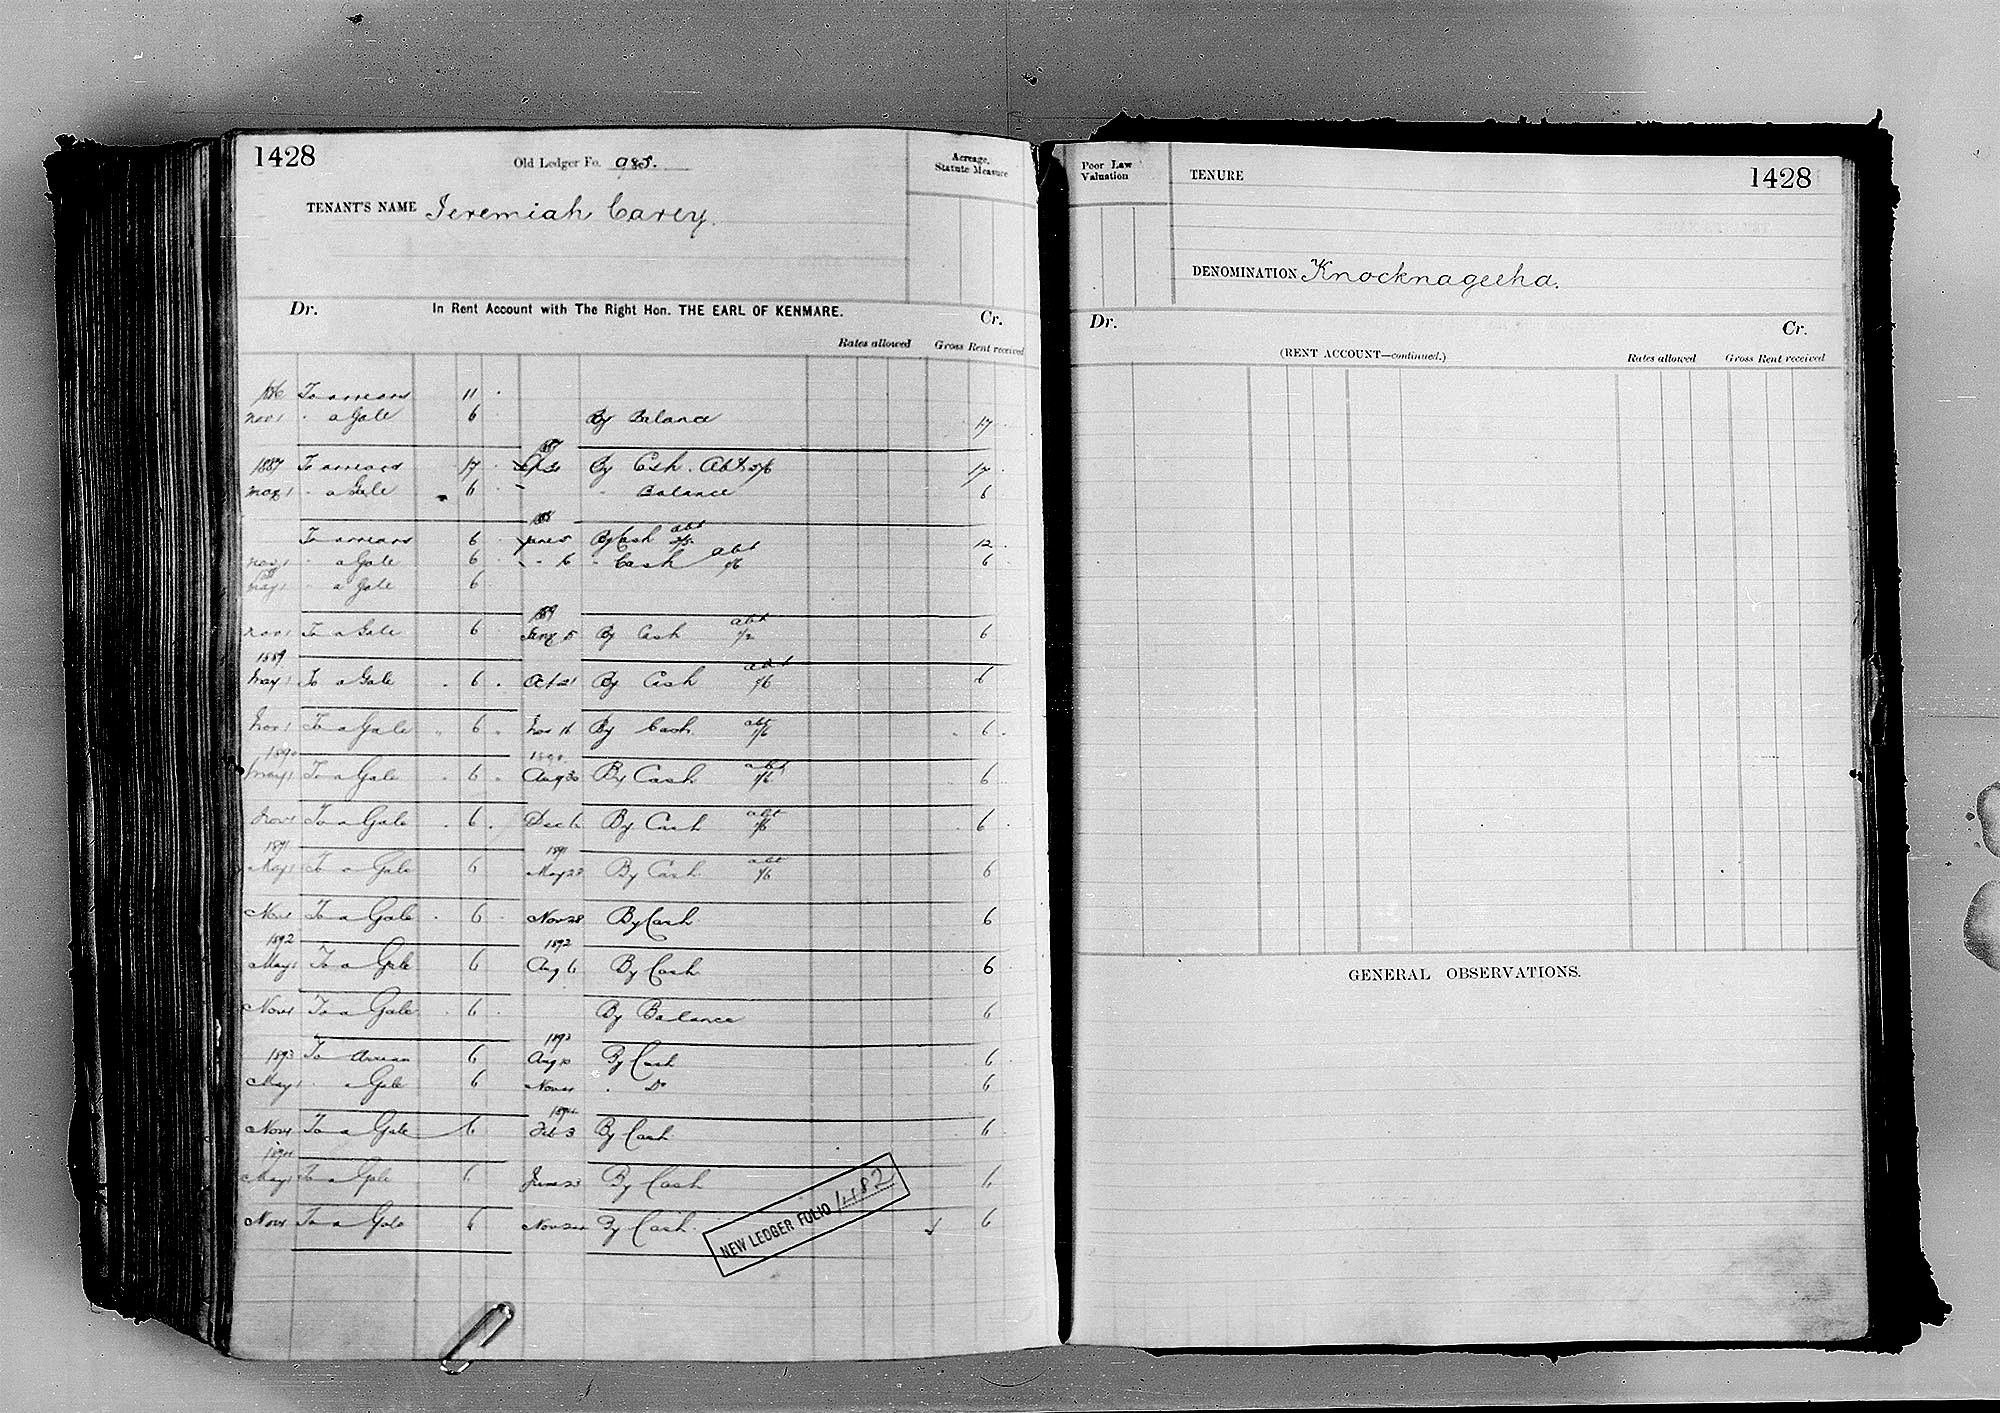 1428
Old Ledger Fo. 985.
Acreage, Statute Measure
TENANT'S NAME Jeremiah Carey.
Dr. In Rent Account with The Right Hon. THE EARL OF KENMARE. Cr.
Rates allowed Gross Rent received
To arrears 11
Nov 1 " a Gale 6 By Balance 17
1887 To arrears 17 By Cash. Abt 17
May 1 " a Gale 6 " Balance 6
To arrears 6 By Cash abt 12
Nov 1 " a Gale 6 " Cash abt 6
May 1 " a Gale 6
1889
Nov 1 To a Gale 6 Jany 5 By Cash abt 6
1889
May 1 To a Gale 6 Oct 21 By Cash abt 6
Nov 1 To a Gale 6 Nov 16 By Cash abt 6
1890 1890
May 1 To a Gale 6 Aug 30 By Cash abt 6
Nov 1 To a Gale 6 Dec 6 By Cash abt 6
1891 1891
May 1 To a Gale 6 May 23 By Cash abt 6
Nov 1 To a Gale 6 Nov 28 By Cash 6
1892 1892
May 1 To a Gale 6 Aug 6 By Cash 6
Nov 1 To a Gale 6 By Balance 6
1893
1893 To Arrear 6 Aug By Cash 6
May 1 " a Gale 6 Nov " Do 6
1894
Nov 1 To a Gale 6 Feb 3 By Cash 6
1894
May 1 To a Gale 6 June 23 By Cash 6
Nov 1 To a Gale 6 Nov By Cash 6
NEW LEDGER FOLIO 1482
Poor Law Valuation
TENURE
1428
DENOMINATION Knocknageeha.
Dr. Cr.
(RENT ACCOUNT—continued.) Rates allowed Gross Rent received
GENERAL OBSERVATIONS.